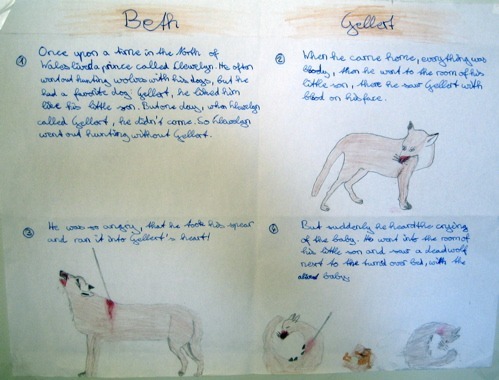 Beth Gellert
① Once upon a time in the North of
Wales lived a prince called Llewelyn. He often
went out hunting wolves with his dogs, but he
had a favorite dog Gellert, he liked him
like his little son. But one day, when Llewelyn
called Gellert, he didn't come. So Llewelyn
went out hunting without Gellert.
② When he came home, everything was
bloody, then he went to the room of his
little son, there he saw Gellert with
blood on his face.
③ He was so angry, that he took his spear
and ran it into Gellert's heart!
④ But suddenly he heard the crying
of the baby. He went into the room of
his little son and saw a dead wolf
next to the turned over bed, with the
baby